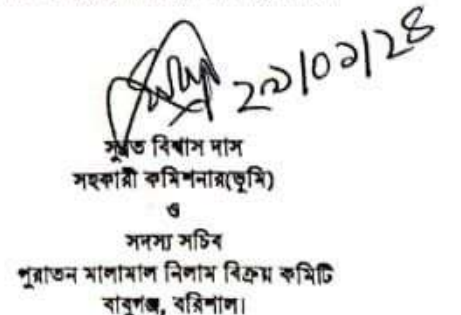 সুব্রত বিশ্বাস দাস
সহকারী কমিশনার(ভূমি)
ও
সদস্য সচিব
পুরাতন মালামাল নিলাম বিক্রয় কমিটি
বাবুগঞ্জ, বরিশাল।